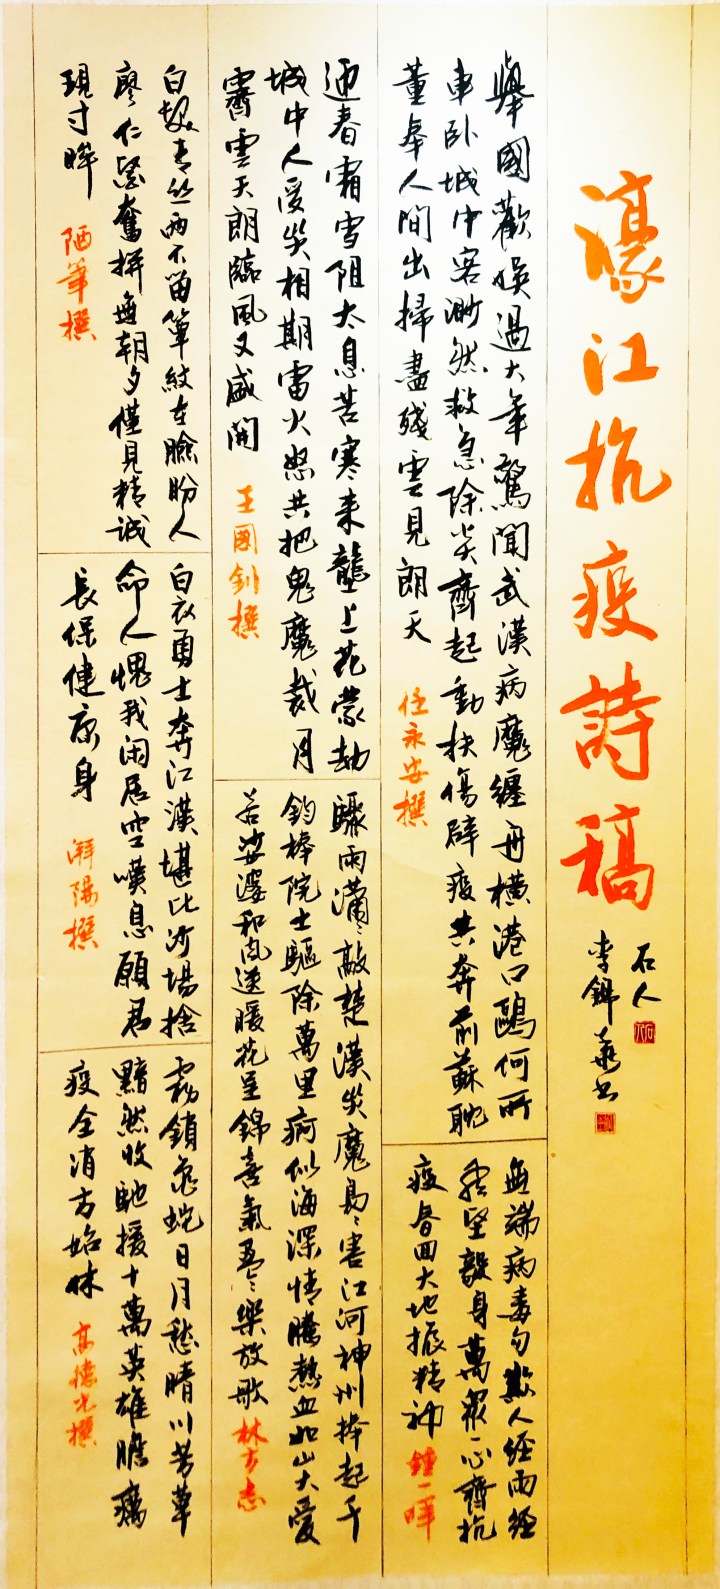 濠江抗疫詩稿
石人
李錦華书
舉國歡娛過大年驚聞武漢病魔纏舟橫港口鷗何所
車卧城中客渺然救急除炎齊起動扶傷辟疫共奔前蘇耽
董奉人間出掃盡殘雲見朗天 任永安撰
無端病毒勾欺人經雨經
堅毅身萬眾一心齊抗
疫春回大地振精神 鍾一暉
迎春霜雪阻太息苦寒来壟上花蒙劫
城中人受災相期雷火怒共把鬼魔裁月
霽雲天朗臨風又盛開 王國釗撰
驟雨瀟々敲楚漢災魔害江河神州捧起千
鈞棒院士驅除萬里疴似海深情騰熱血如山大愛
若娑婆和風送暖花呈錦喜氣盈々樂放歌 林方志
白髮青丝两不留箪紋在臉盼人
廖仁醫奮拼無朝夕僅見精诚
現寸暉 陋筆撰
白衣勇士奔江漢堪比沙場捨
命人愧我闲居空嘆息願君
長保健康身 湃陽撰
霧鎖龜蛇日月愁晴川芳草
黯然收馳援十萬英雄膽癘
疫全消方始休 高德光撰